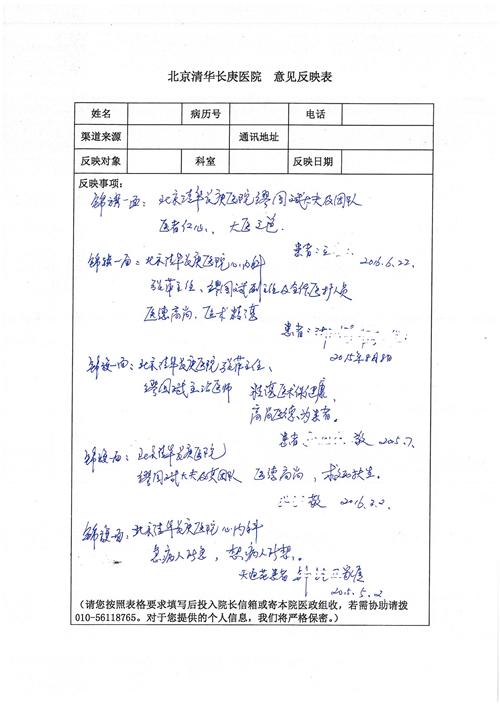 北京清华长庚医院 意见反映表
姓名 病历号 电话
渠道来源 通讯地址
反映对象 科室 反映日期
反映事项：
锦旗一面：北京清华长庚医院缪国斌大夫及团队
医者仁心、大医之道
患者：
2016.6.22.
锦旗一面：北京清华长庚医院心内科
张萍主任、缪国斌副主任及全体医护人员
医德高尚、医术精湛
患者：
2015年8月8日
锦旗一面：北京清华长庚医院张萍主任、
缪国斌主治医师 精湛医术保健康，
高尚医德为患者。
患者 敬 2015.7.
锦旗一面：北京清华长庚医院
缪国斌大夫及其团队 医德高尚，救死扶生。
敬 2016.2.2.
锦旗一面：北京清华长庚医院心内科
急病人所急，想病人所想。
患者 家属
2015.5.2
（请您按照表格要求填写后投入院长信箱或寄本院医政组收，若需协助请拨
010-56118765。对于您提供的个人信息，我们将严格保密。）